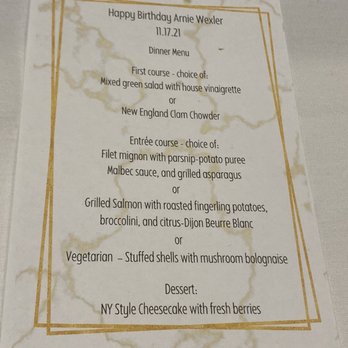 Happy Birthday Arnie Wexler
11.17.21
Dinner Menu
First course - choice of:
Mixed green salad with house vinaigrette
or
New England Clam Chowder
Entrée course - choice of:
Filet mignon with parsnip-potato puree
Malbec sauce, and grilled asparagus
or
Grilled Salmon with roasted fingerling potatoes,
broccolini, and citrus-Dijon Beurre Blanc
or
Vegetarian – Stuffed shells with mushroom bolognaise
Dessert:
NY Style Cheesecake with fresh berries